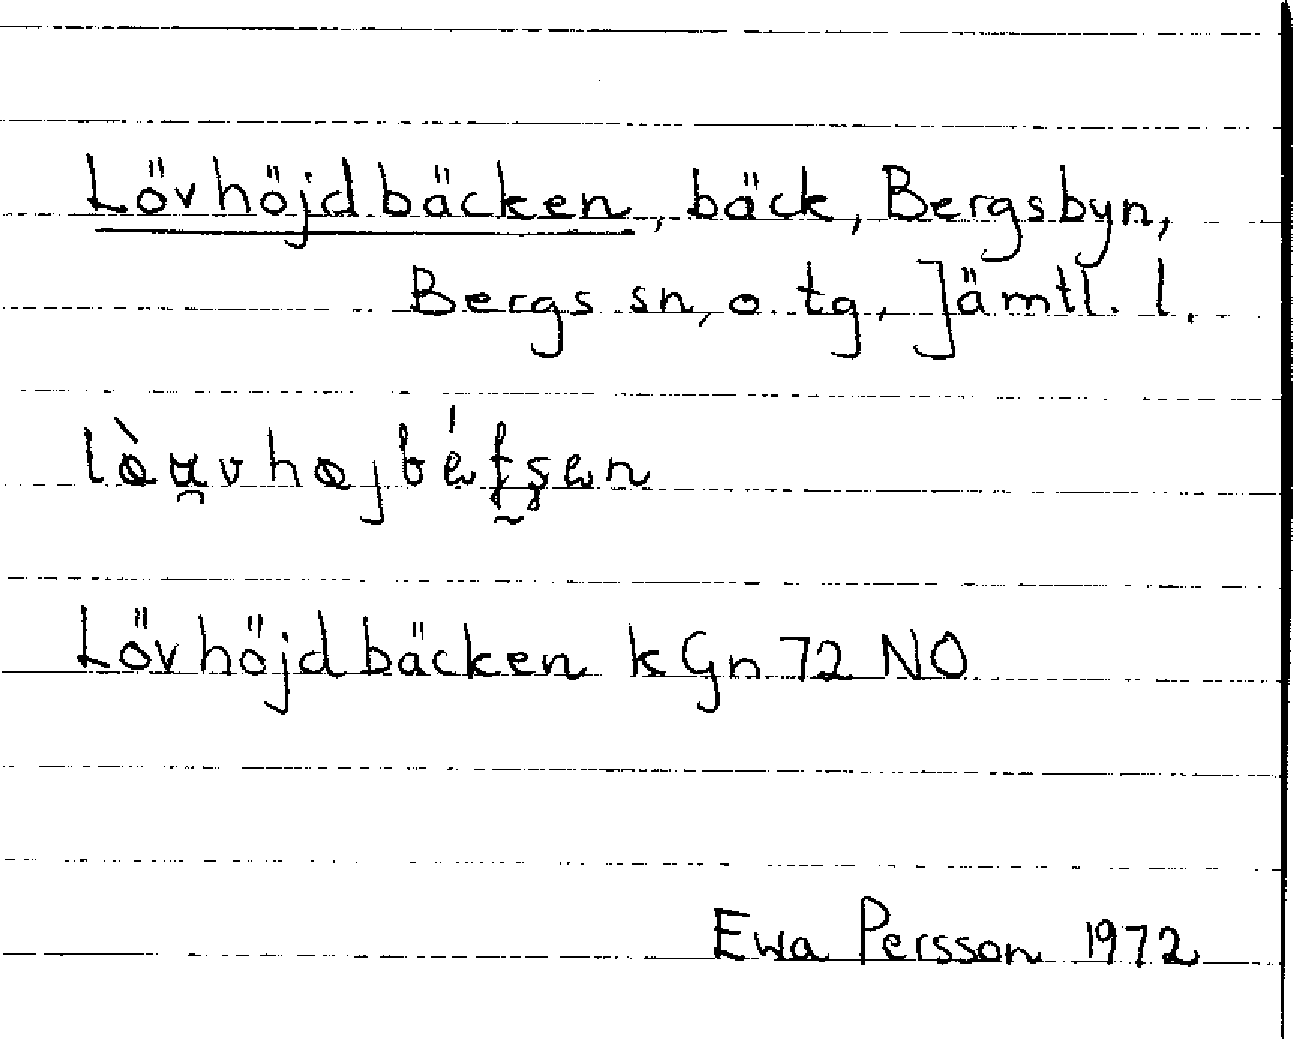 Lövhöjdbäcken, bäck, Bergsbyn,
Bergs sn, o. tg, Jämtl. l.
Lövhöjdbäcken k Gn 72 NO
Ewa Persson 1972